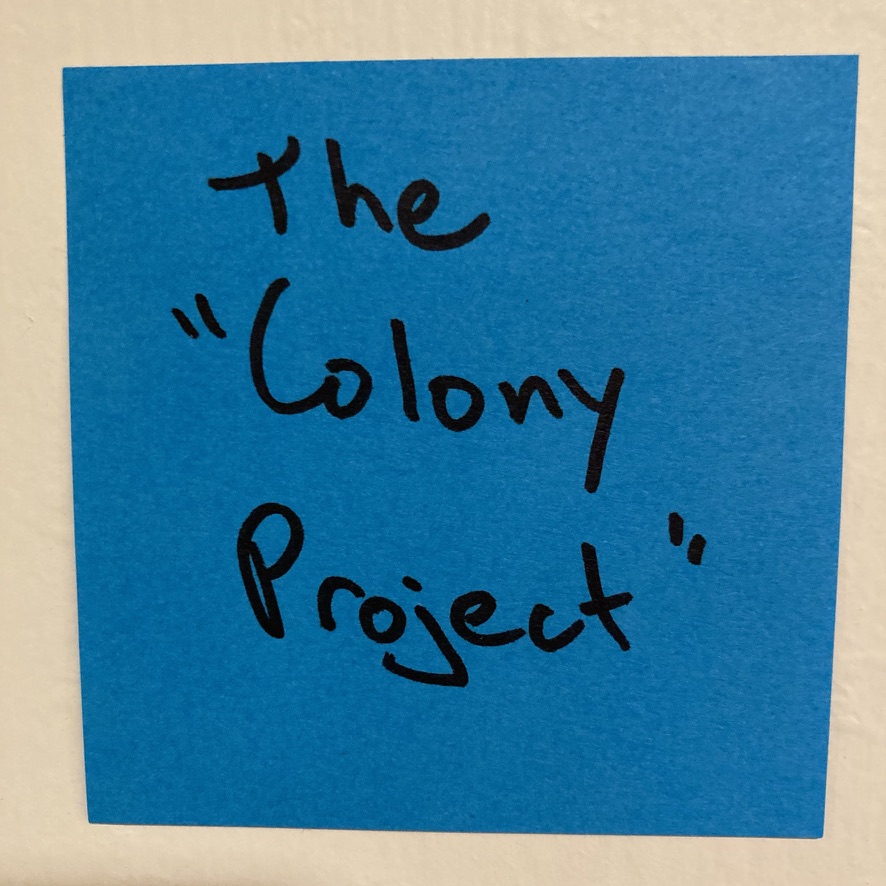 The
"Colony
Project"